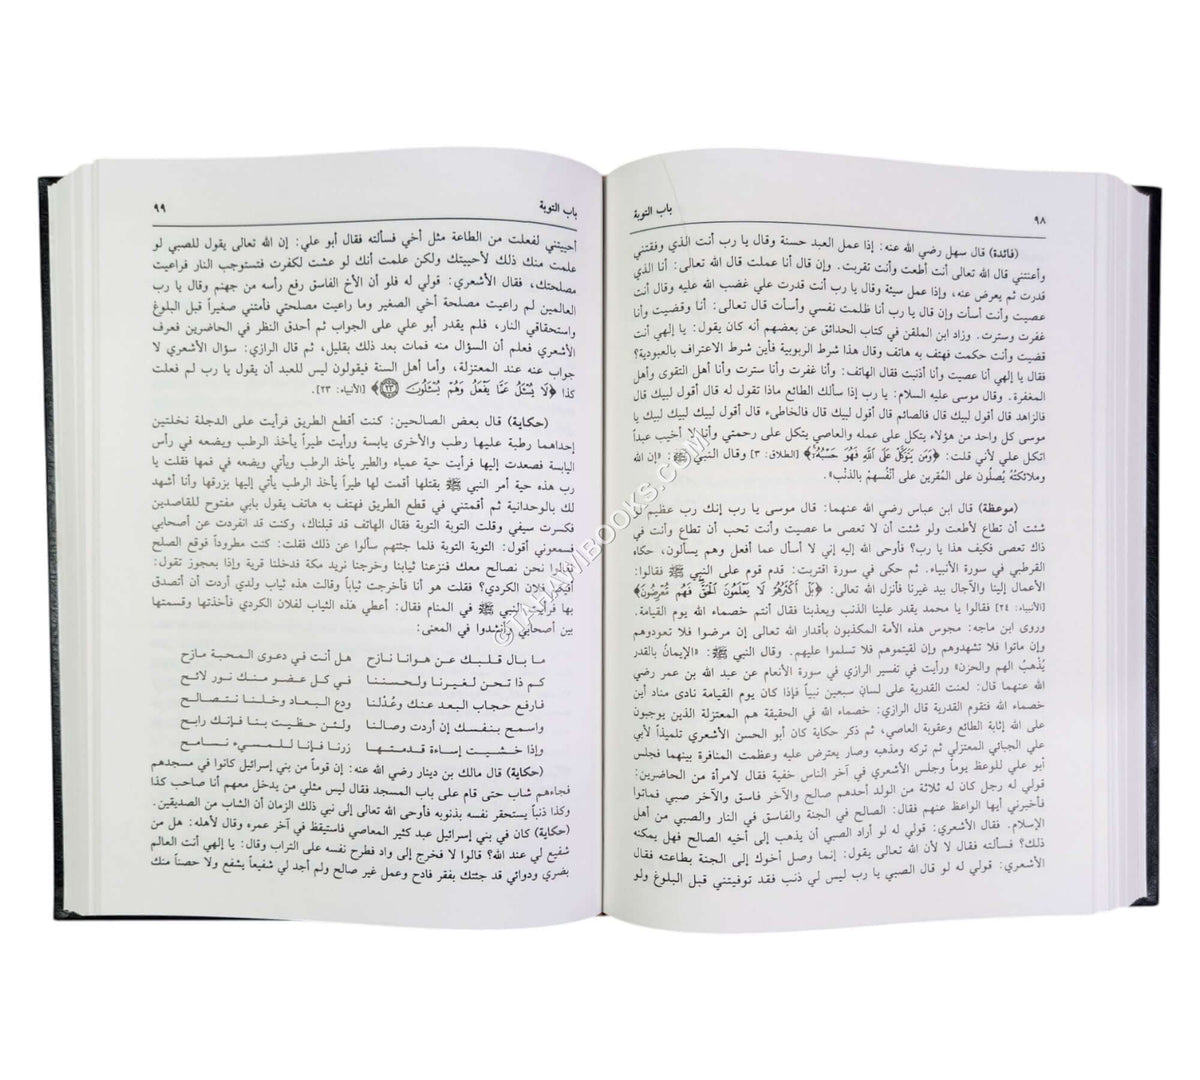 ٩٨ باب التوبة
(فائدة) قال سهل رضي الله عنه: إذا عمل العبد حسنة وقال يا رب أنت الذي وفقتني
وأعنتني قال الله تعالى أنت أطعت وأنت تقربت. وإن قال أنا عملت قال الله تعالى: أنا الذي
قدرت ثم يعرض عنه، وإذا عمل سيئة وقال يا رب أنت قدرت علي غضب الله عليه وقال أنت
عصيت وأنت أسأت وإن قال يا رب أنا ظلمت نفسي وأسأت قال تعالى: أنا وقضيت وأنا
غفرت وسترت. وزاد ابن الملقن في كتاب الحدائق عن بعضهم أنه كان يقول: يا إلهي أنت
قضيت وأنت حكمت فهتف به هاتف وقال هذا شرط الربوبية فأين شرط الاعتراف بالعبودية؟
فقال يا إلهي أنا عصيت وأنا أذنبت فقال الهاتف: وأنا غفرت وأنا سترت وأنا أهل التقوى وأهل
المغفرة. وقال موسى عليه السلام: يا رب إذا سألك الطائع ماذا تقول له قال أقول لبيك قال
فالزاهد قال أقول لبيك قال فالصائم قال أقول لبيك قال فالخاطىء قال أقول لبيك لبيك لبيك يا
موسى كل واحد من هؤلاء يتكل على عمله والعاصي يتكل على رحمتي وأنا لا أخيب عبداً
اتكل علي لأني قلت: ﴿وَمَن يَتَوَكَّلْ عَلَى اللَّهِ فَهُوَ حَسْبُهُ﴾ [الطلاق: ٣] وقال النبي ﷺ: «إن الله
وملائكتهُ يُصلُون على المُقرين على أنفُسهمْ بالذنْب».
(موعظة) قال ابن عباس رضي الله عنهما: قال موسى يا رب إنك رب عظيم لو
شئت أن تطاع لأطعت ولو شئت أن لا تعصى ما عصيت وأنت تحب أن تطاع وأنت في
ذاك تعصى فكيف هذا يا رب؟ فأوحى الله إليه إني لا أسأل عما أفعل وهم يسألون، حكاه
القرطبي في سورة الأنبياء. ثم حكى في سورة اقتربت: قدم قوم على النبي ﷺ فقالوا:
الأعمال إلينا والآجال بيد غيرنا فأنزل الله تعالى: ﴿بَلْ أَكْثَرُهُمْ لَا يَعْلَمُونَ الْحَقَّ فَهُم مُّعْرِضُونَ﴾
[الأنبياء: ٢٤] فقالوا يا محمد يقدر علينا الذنب ويعذبنا فقال أنتم خصماء الله يوم القيامة.
وروى ابن ماجه: مجوس هذه الأمة المكذبون بأقدار الله تعالى إن مرضوا فلا تعودوهم
وإن ماتوا فلا تشهدوهم وإن لقيتموهم فلا تسلموا عليهم. وقال النبي ﷺ: «الإيمانُ بالقدر
يُذْهبُ الهم والحزن» ورأيت في تفسير الرازي في سورة الأنعام عن عبد الله بن عمر رضي
الله عنهما قال: لعنت القدرية على لسان سبعين نبياً فإذا كان يوم القيامة نادى مناد أين
خصماء الله فتقوم القدرية قال الرازي: خصماء الله في الحقيقة هم المعتزلة الذين يوجبون
على الله إثابة الطائع وعقوبة العاصي، ثم ذكر حكاية كان أبو الحسن الأشعري تلميذاً لأبي
علي الجبائي المعتزلي ثم تركه ومذهبه وصار يعترض عليه وعظمت المنافرة بينهما فجلس
أبو علي للوعظ يوماً وجلس الأشعري في آخر الناس خفية فقال لامرأة من الحاضرين:
قولي له رجل كان له ثلاثة من الولد أحدهم صالح والآخر فاسق والآخر صبي فماتوا
فأخبرني أيها الواعظ عنهم فقال: الصالح في الجنة والفاسق في النار والصبي من أهل
الإسلام. فقال الأشعري: قولي له لو أراد الصبي أن يذهب إلى أخيه الصالح فهل يمكنه
ذلك؟ فسألته فقال لا لأن الله تعالى يقول: إنما وصل أخوك إلى الجنة بطاعته فقال
الأشعري: قولي له لو قال الصبي يا رب ليس لي ذنب فقد توفيتني قبل البلوغ ولو
باب التوبة ٩٩
أحييتني لفعلت من الطاعة مثل أخي فسألته فقال أبو علي: إن الله تعالى يقول للصبي لو
علمت منك ذلك لأحييتك ولكن علمت أنك لو عشت لكفرت فتستوجب النار فراعيت
مصلحتك، فقال الأشعري: قولي له فلو أن الأخ الفاسق رفع رأسه من جهنم وقال يا رب
العالمين لم راعيت مصلحة أخي الصغير وما راعيت مصلحتي فأمتني صغيراً قبل البلوغ
واستحقاقي النار، فلم يقدر أبو علي على الجواب ثم أحدق النظر في الحاضرين فعرف
الأشعري فعلم أن السؤال منه فمات بعد ذلك بقليل، ثم قال الرازي: سؤال الأشعري لا
جواب عنه عند المعتزلة، وأما أهل السنة فيقولون ليس للعبد أن يقول يا رب لم فعلت
كذا ﴿لَا يُسْئَلُ عَمَّا يَفْعَلُ وَهُمْ يُسْئَلُونَ ٢٣﴾ [الأنبياء: ٢٣].
(حكاية) قال بعض الصالحين: كنت أقطع الطريق فرأيت على الدجلة نخلتين
إحداهما رطبة عليها رطب والأخرى يابسة ورأيت طيراً يأخذ الرطب ويضعه في رأس
اليابسة فصعدت إليها فرأيت حية عمياء والطير يأخذ الرطب ويأتي ويضعه في فمها فقلت يا
رب هذه حية أمر النبي ﷺ بقتلها أقمت لها طيراً يأخذ الرطب يأتي إليها بزرقها وأنا أشهد
لك بالوحدانية ثم أقمتني في قطع الطريق فهتف به هاتف يقول بابي مفتوح للقاصدين
فكسرت سيفي وقلت التوبة التوبة فقال الهاتف قد قبلناك، وكنت قد انفردت عن أصحابي
فسمعوني أقول: التوبة التوبة فلما جئتهم سألوا عن ذلك فقلت: كنت مطروداً فوقع الصلح
فقالوا نحن نصالح معك فنزعنا ثيابنا وخرجنا نريد مكة فدخلنا قرية وإذا بعجوز تقول:
أفيكم فلان الكردي؟ فقلت هو أنا فأخرجت ثياباً وقالت هذه ثياب ولدي أردت أن أتصدق
بها فرأيت النبي ﷺ في المنام فقال: أعطي هذه الثياب لفلان الكردي فأخذتها وقسمتها
بين أصحابي وأنشدوا في المعنى:
ما بال قلبك عن هوانا نازح هل أنت في دعوى المحبة مازح
كم ذا تحن لغيرنا ولحسننا في كل عضو منك نور لائح
فارفع حجاب البعد عنك وعُدْلنا ودع البعاد وخلنا نتصالح
واسمح بنفسك إن أردت وصالنا ولئن حظيت بنا فإنك رابح
وإذا خشيت إساءة قدمتها زرنا فإنا للمسيء نسامح
(حكاية) قال مالك بن دينار رضي الله عنه: إن قوماً من بني إسرائيل كانوا في مسجدهم
فجاءهم شاب حتى قام على باب المسجد فقال ليس مثلي من يدخل معهم أنا صاحب كذا
وكذا ذنباً يستحقر نفسه بذنوبه فأوحى الله تعالى إلى نبي ذلك الزمان أن الشاب من الصديقين.
(حكاية) كان في بني إسرائيل عبد كثير المعاصي فاستيقظ في آخر عمره وقال لأهله: هل من
شفيع لي عند الله؟ قالوا لا فخرج إلى واد فطرح نفسه على التراب وقال: يا إلهي أنت العالم
بضري ودوائي قد جئتك بفقر فادح وعمل غير صالح ولم أجد لي شفيعاً يشفع ولا حصناً منك
©TAHAWIBOOKS.COM